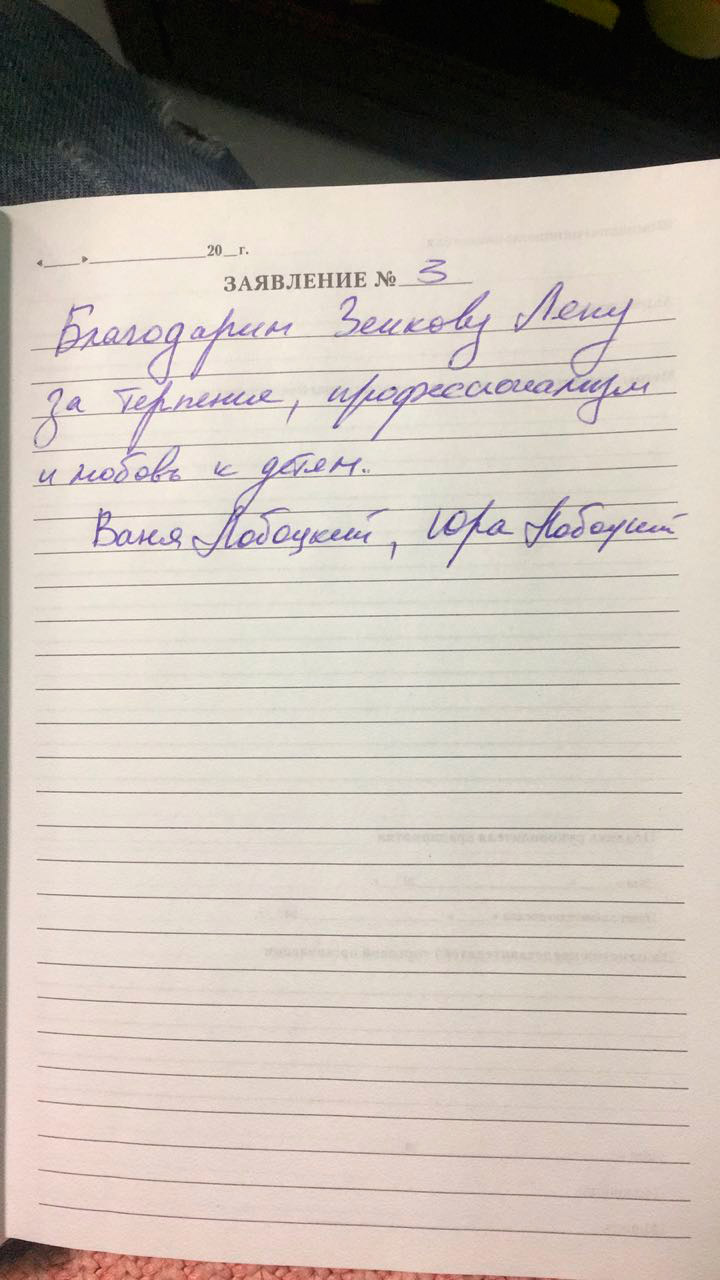 «____»____________20__г.
ЗАЯВЛЕНИЕ № 3
Благодарим Зенкову Лену
за терпение, профессионализм
и любовь к детям.
Ваня Лобоцкий, Юра Лобоцкий